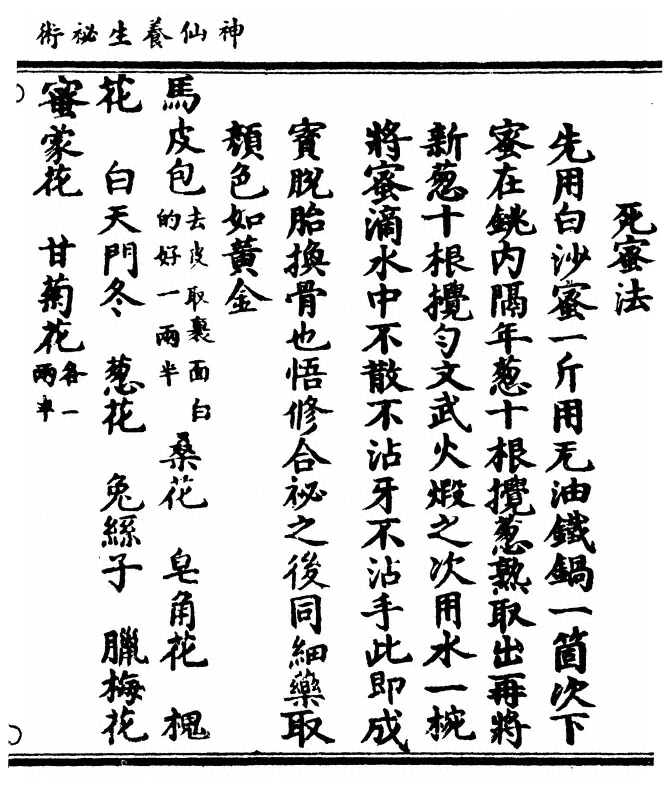 神仙養生祕術
死蜜法
先用白沙蜜一斤用无油鐵鍋一箇次下
蜜在銚內隔年葱十根攪葱熟取出再將
新葱十根攪勻文武火煅之次用水一椀
將蜜滴水中不散不沾牙不沾手此即成
寳脫胎換骨也悟修合祕之後同細藥取
顏色如黃金
馬皮包去皮取裏面白的好一兩半桑花　皂角花　槐
花　白天門冬　葱花　兔絲子　臘梅花
蜜蒙花　甘菊花各一兩半